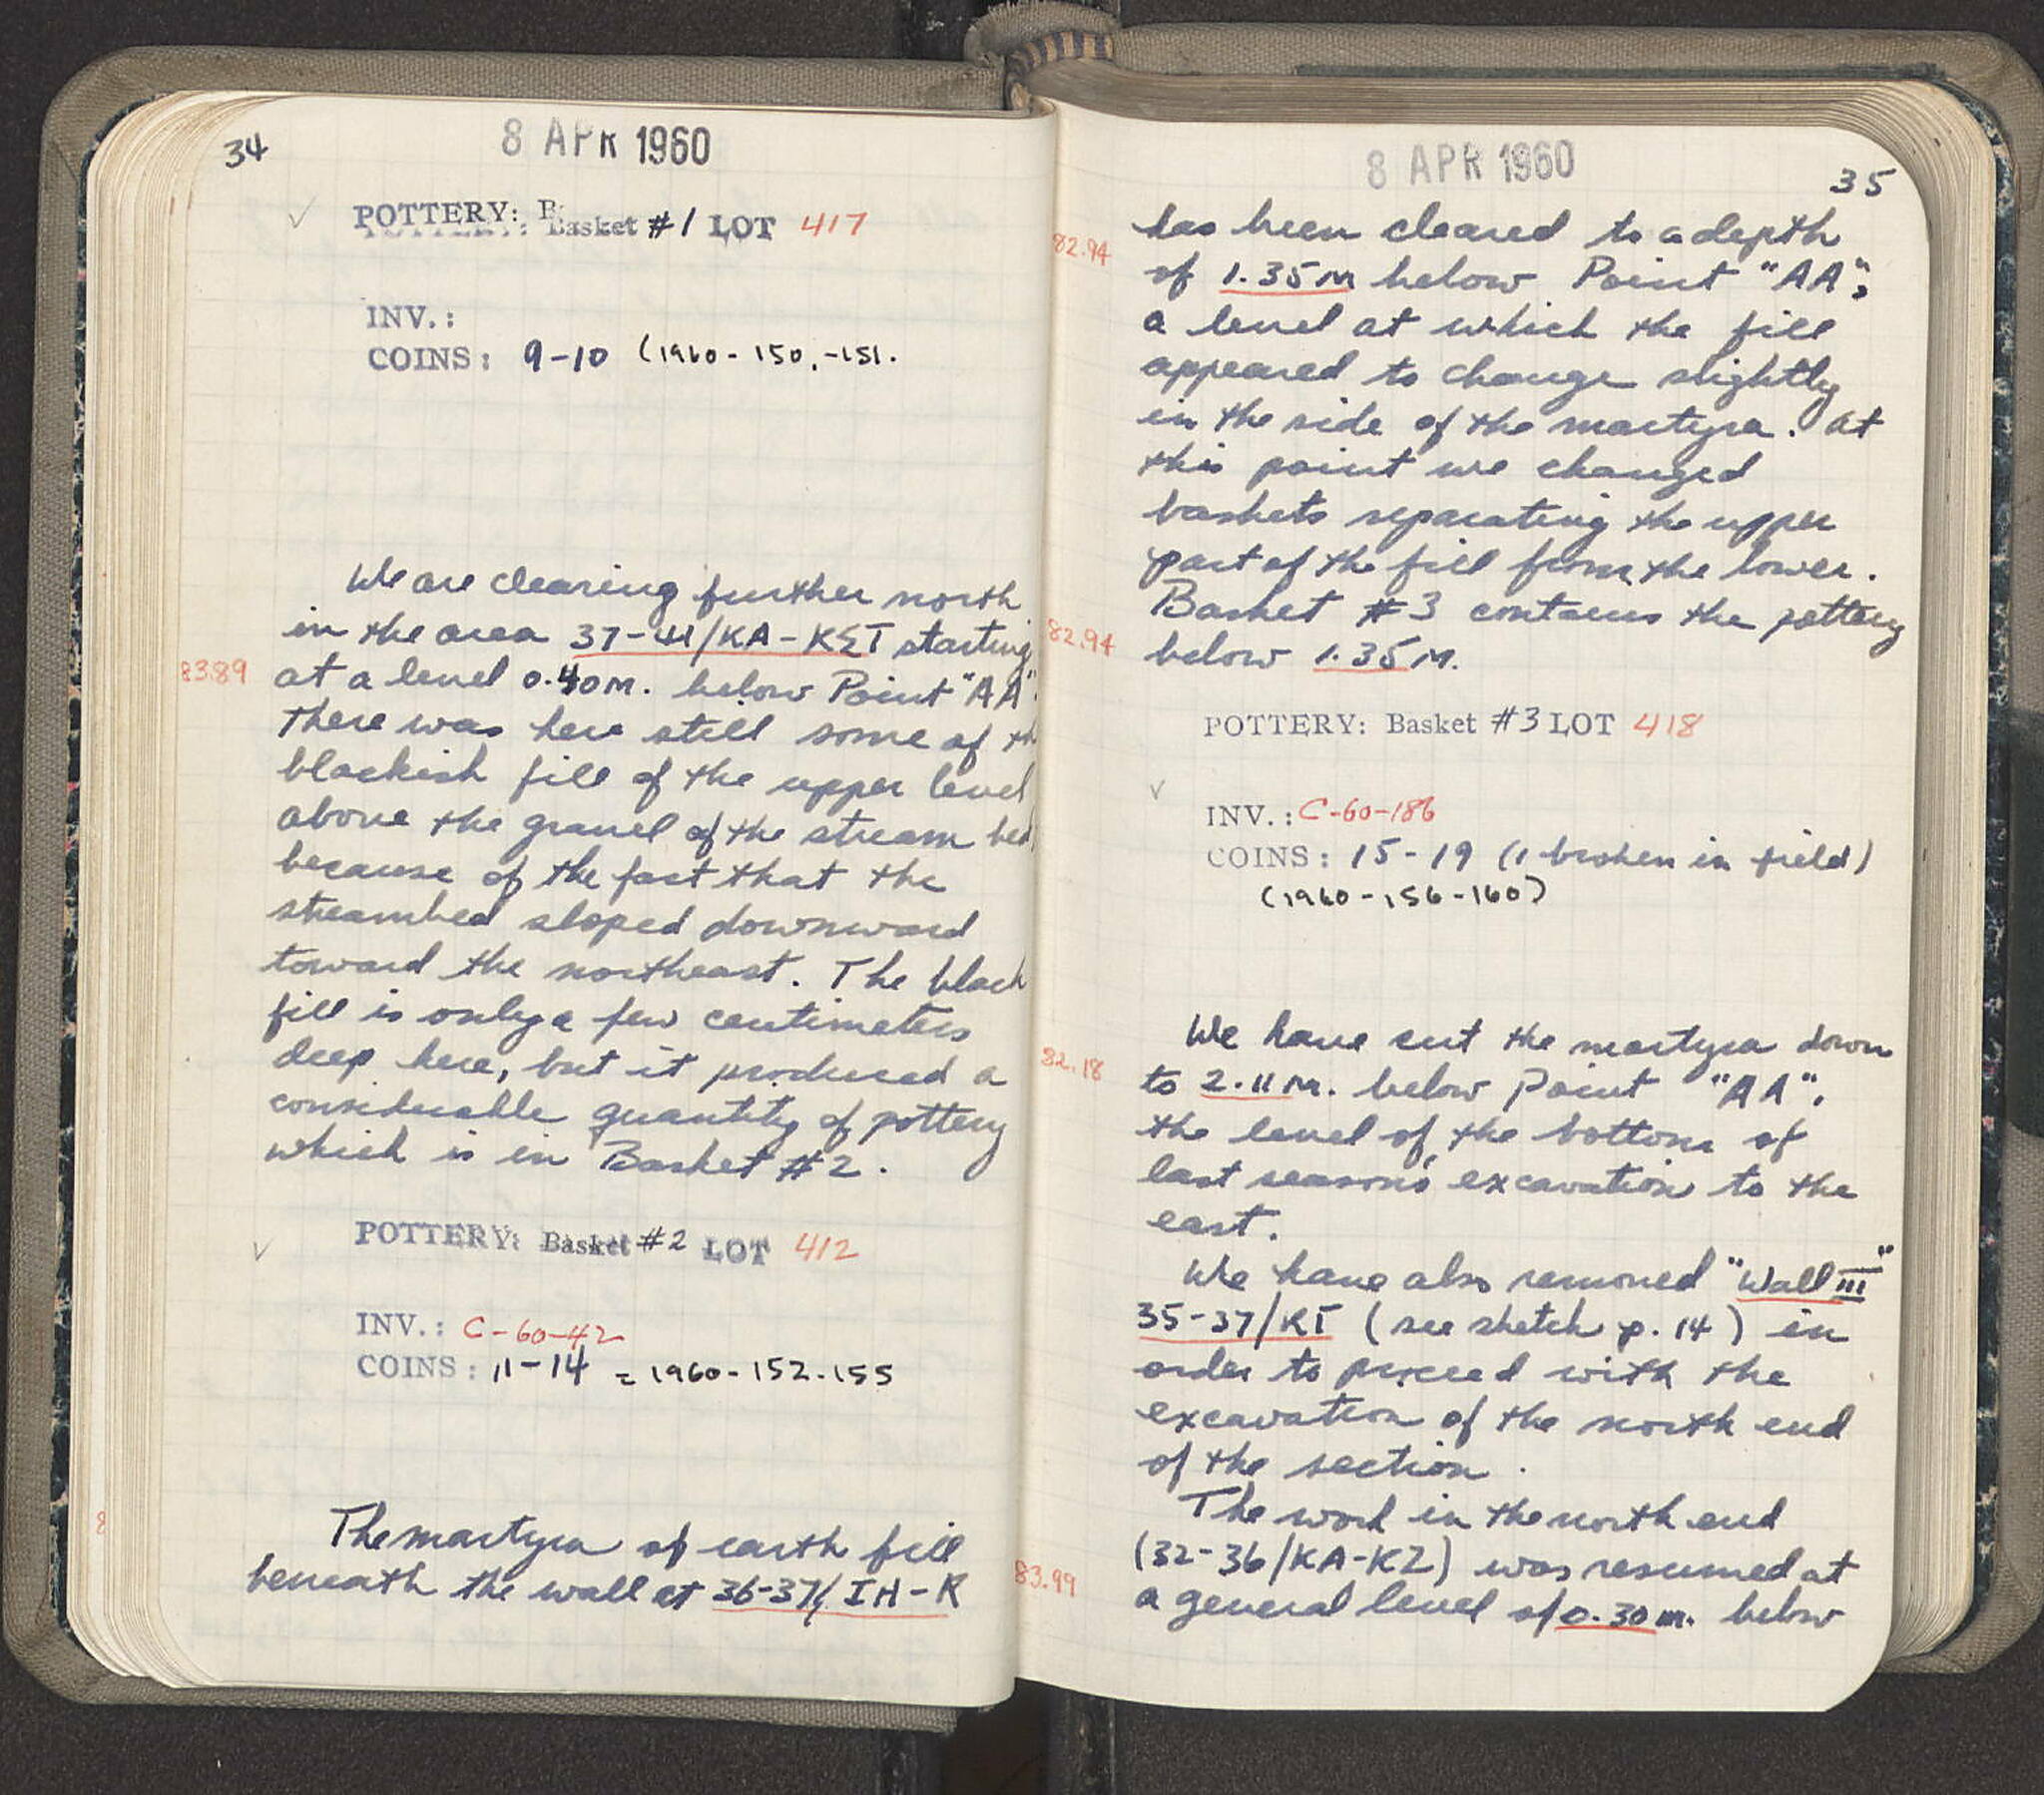 34
8 APR 1960
POTTERY: Basket #1 LOT 417
INV.:
COINS: 9-10 (1960-150,-151.
We are clearing further north
in the area 37-41/KA-KΣT starting
83.89 at a level 0.40M. below Point "AA".
There was here still some of th
blackish fill of the upper level
above the gravel of the stream bed
because of the fact that the
streambed sloped downward
toward the northeast. The black
fill is only a few centimeters
deep here, but it produced a
considerable quantity of pottery
which is in Basket #2.
POTTERY: Basket #2 LOT 412
INV.: C-60-42
COINS: 11-14 = 1960-152-155
The martyra of earth fill
beneath the wall at 36-37/IH-K
8 APR 1960
35
has been cleared to a depth
82.94 of 1.35M below Point "AA",
a level at which the fill
appeared to change slightly
in the side of the martyra. At
this point we changed
baskets separating the upper
part of the fill from the lower.
Basket #3 contains the pottery
82.94 below 1.35M.
POTTERY: Basket #3 LOT 418
INV.: C-60-186
COINS: 15-19 (1 broken in field)
(1960-156-160)
We have cut the martyra down
82.18 to 2.11M. below Point "AA",
the level of the bottom of
last season's excavation to the
east.
We have also removed "Wall III"
35-37/KΓ (see sketch p. 14) in
order to proceed with the
excavation of the north end
of the section.
The work in the north end
(32-36/KA-KZ) was resumed at
83.99 a general level of 0.30m. below